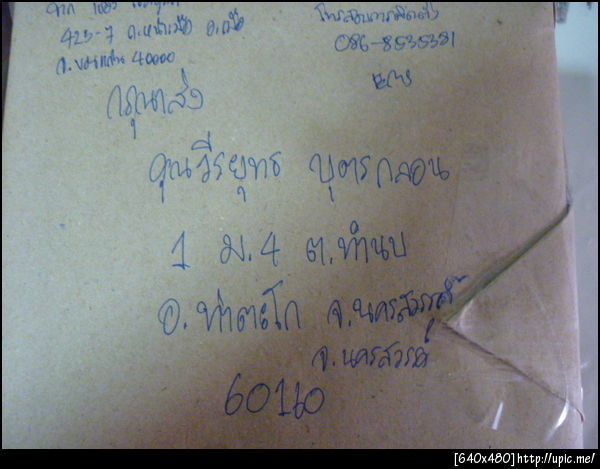 จาก
423-7 ถ.หน้าเมือง อ.เมือง
จ.ขอนแก่น 40000
086-8535381
กรุณาส่ง
คุณวีรยุทธ บุตรกลอน
1 ม.4 ต.ทำนบ
อ.ท่าตะโก จ.นครสวรรค์
จ.นครสวรรค์
60160
[640x480]http://upic.me/